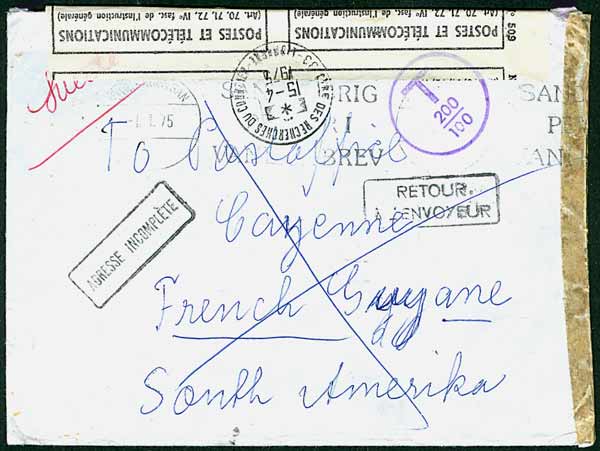 (Art. 70, 71, 72, IVᵉ fasc. de l'Instruction générale)
POSTES ET TÉLÉCOMMUNICATIONS
POSTES ET TÉLÉCOMMUNICATIONS
(Art. 70, 71, 72, IVᵉ fasc. de l'Instruction générale)
N° 509
CENTRE DES RECHERCHES DU COURRIER
15-4
1975
T
200/100
75
RIG
SAN
I
BREV
To
Cayenne
RETOUR
À L'ENVOYEUR
ADRESSE INCOMPLÈTE
French Guyane
South Amerika